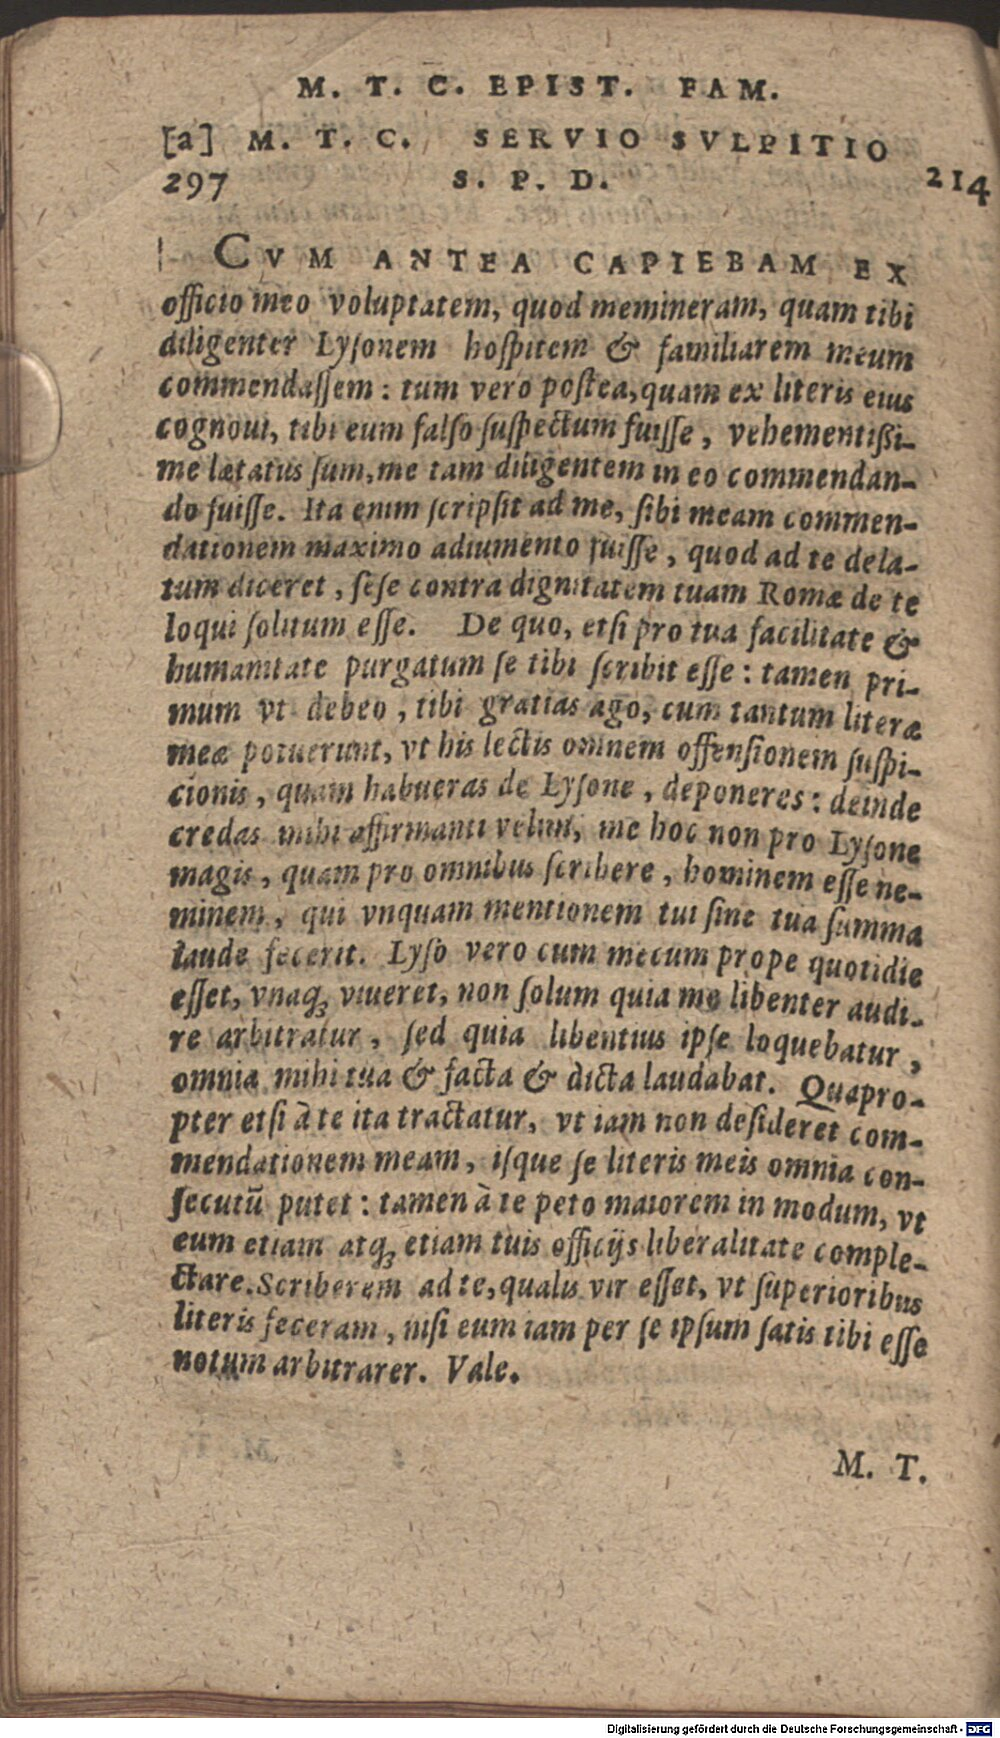 M. T. C. EPIST. FAM.
[a] M. T. C. SERVIO SVLPITIO
297 S. P. D. 214
CVM ANTEA CAPIEBAM EX
officio meo voluptatem, quod memineram, quam tibi
diligenter Lysonem hospitem & familiarem meum
commendassem: tum vero postea, quam ex literis eius
cognoui, tibi eum falso suspectum fuisse, vehementißi-
me lætatus sum, me tam diligentem in eo commendan-
do fuisse. Ita enim scripsit ad me, sibi meam commen-
dationem maximo adiumento fuisse, quod ad te dela-
tum diceret, sese contra dignitatem tuam Romæ de te
loqui solitum esse. De quo, etsi pro tua facilitate &
humanitate purgatum se tibi scribit esse: tamen pri-
mum vt debeo, tibi gratias ago, cum tantum literæ
meæ potuerunt, vt his lectis omnem offensionem suspi-
cionis, quam habueras de Lysone, deponeres: deinde
credas mihi affirmanti velim, me hoc non pro Lysone
magis, quam pro omnibus scribere, hominem esse ne-
minem, qui vnquam mentionem tui sine tua summa
laude fecerit. Lyso vero cum mecum prope quotidie
esset, vnaq́; viueret, non solum quia me libenter audi-
re arbitratur, sed quia libentius ipse loquebatur,
omnia mihi tua & facta & dicta laudabat. Quapro-
pter etsi à te ita tractatur, vt iam non desideret com-
mendationem meam, isque se literis meis omnia con-
secutū putet: tamen à te peto maiorem in modum, vt
eum etiam atq; etiam tuis officijs liberalitate comple-
ctare. Scriberem ad te, qualis vir esset, vt superioribus
literis feceram, nisi eum iam per se ipsum satis tibi esse
notum arbitrarer. Vale.
M. T.
Digitalisierung gefördert durch die Deutsche Forschungsgemeinschaft - DFG